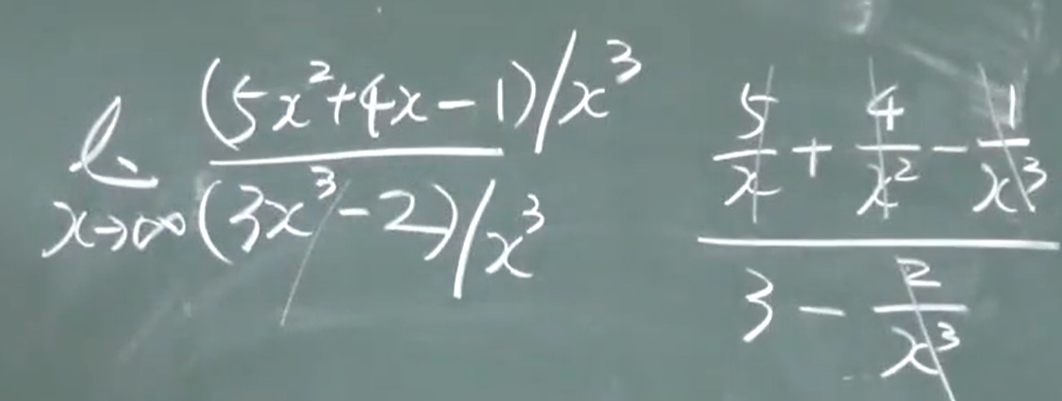 l. x→∞ (5x²+4x-1)/x³ / (3x³-2)/x³
5/x + 4/x² - 1/x³ / 3 - 2/x³